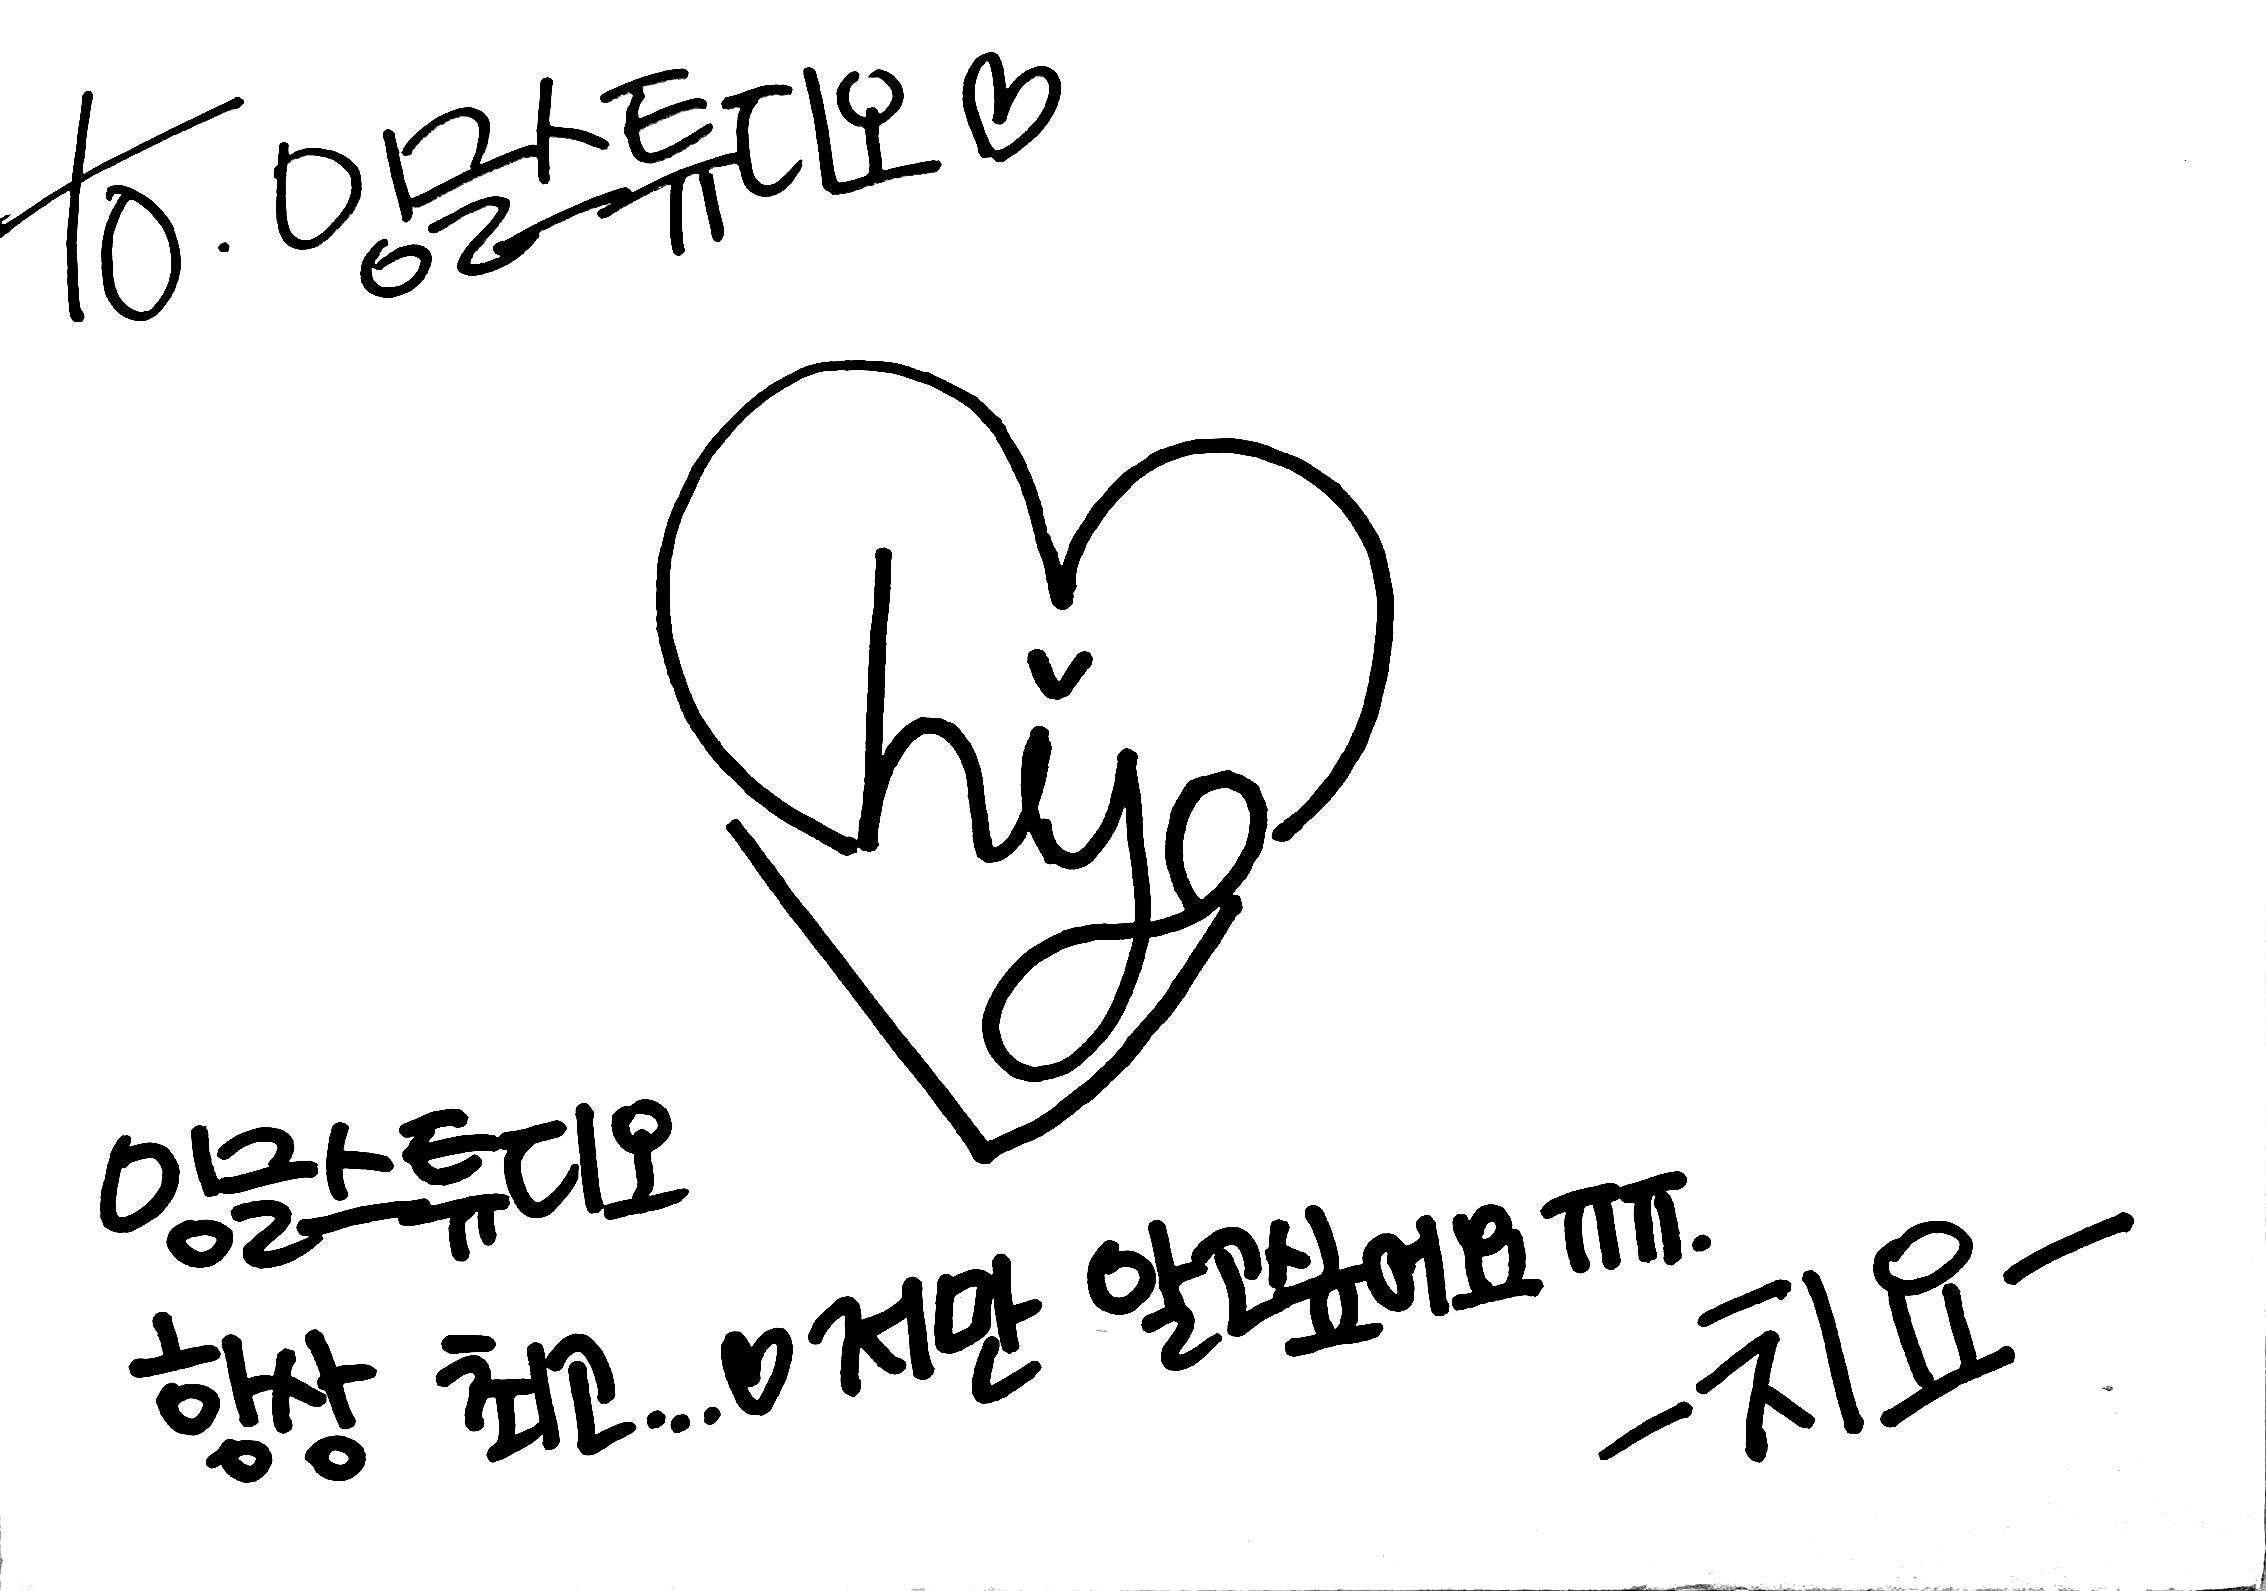 to. 잉글스튜디오♡
hiyo
잉글스튜디오
항상 최고...♥저만 알고싶어요ㅠㅠ.
-치요-